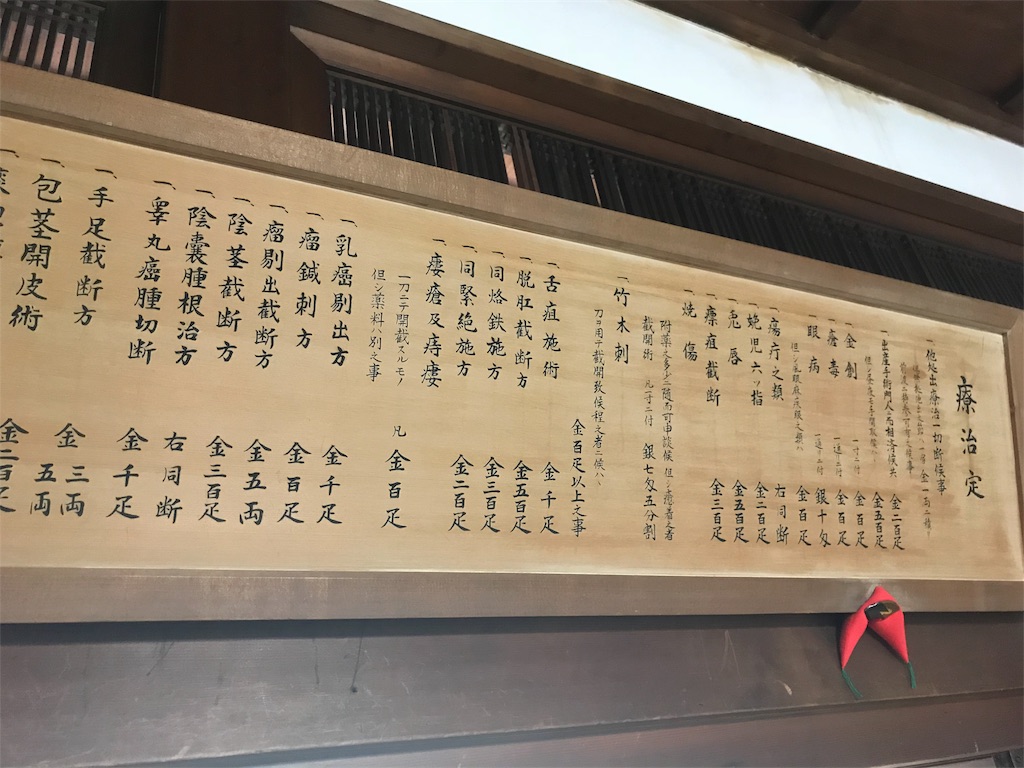 療治定
一、他処出療治一切断候事
一、出産手術 金二百疋
金五百疋
一、金創 一寸ニ付 金百疋
一、瘡毒 一週ニ付 金百疋
一、眼病 一週ニ付 銀十匁
金百疋
一、瘍疔之類 右同断
一、娩児六ツ指 金二百疋
一、兎唇 金五百疋
一、瘭疽截断 金三百疋
一、焼傷
附薬之多少ニ随而可申談候
截開術 凡一寸ニ付 銀七匁五分割
一、竹木刺
刀ヲ用テ截開致候程之者ニ候ハ
金百疋以上之事
一、舌疽施術 金千疋
一、脱肛截断方 金五百疋
一、同烙鉄施方 金三百疋
一、同緊絶施方 金二百疋
一、瘻瘡及痔瘻
一刀ニテ開截スルモノ 凡金百疋
但シ薬料ハ別之事
一、乳癌剔出方 金千疋
一、瘤鍼刺方 金百疋
一、瘤剔出截断方 金五両
一、陰茎截断方 金三百疋
一、陰嚢腫根治方 右同断
一、睾丸癌腫切断 金千疋
一、手足截断方 金三両
五両
一、包茎開皮術 金二百疋